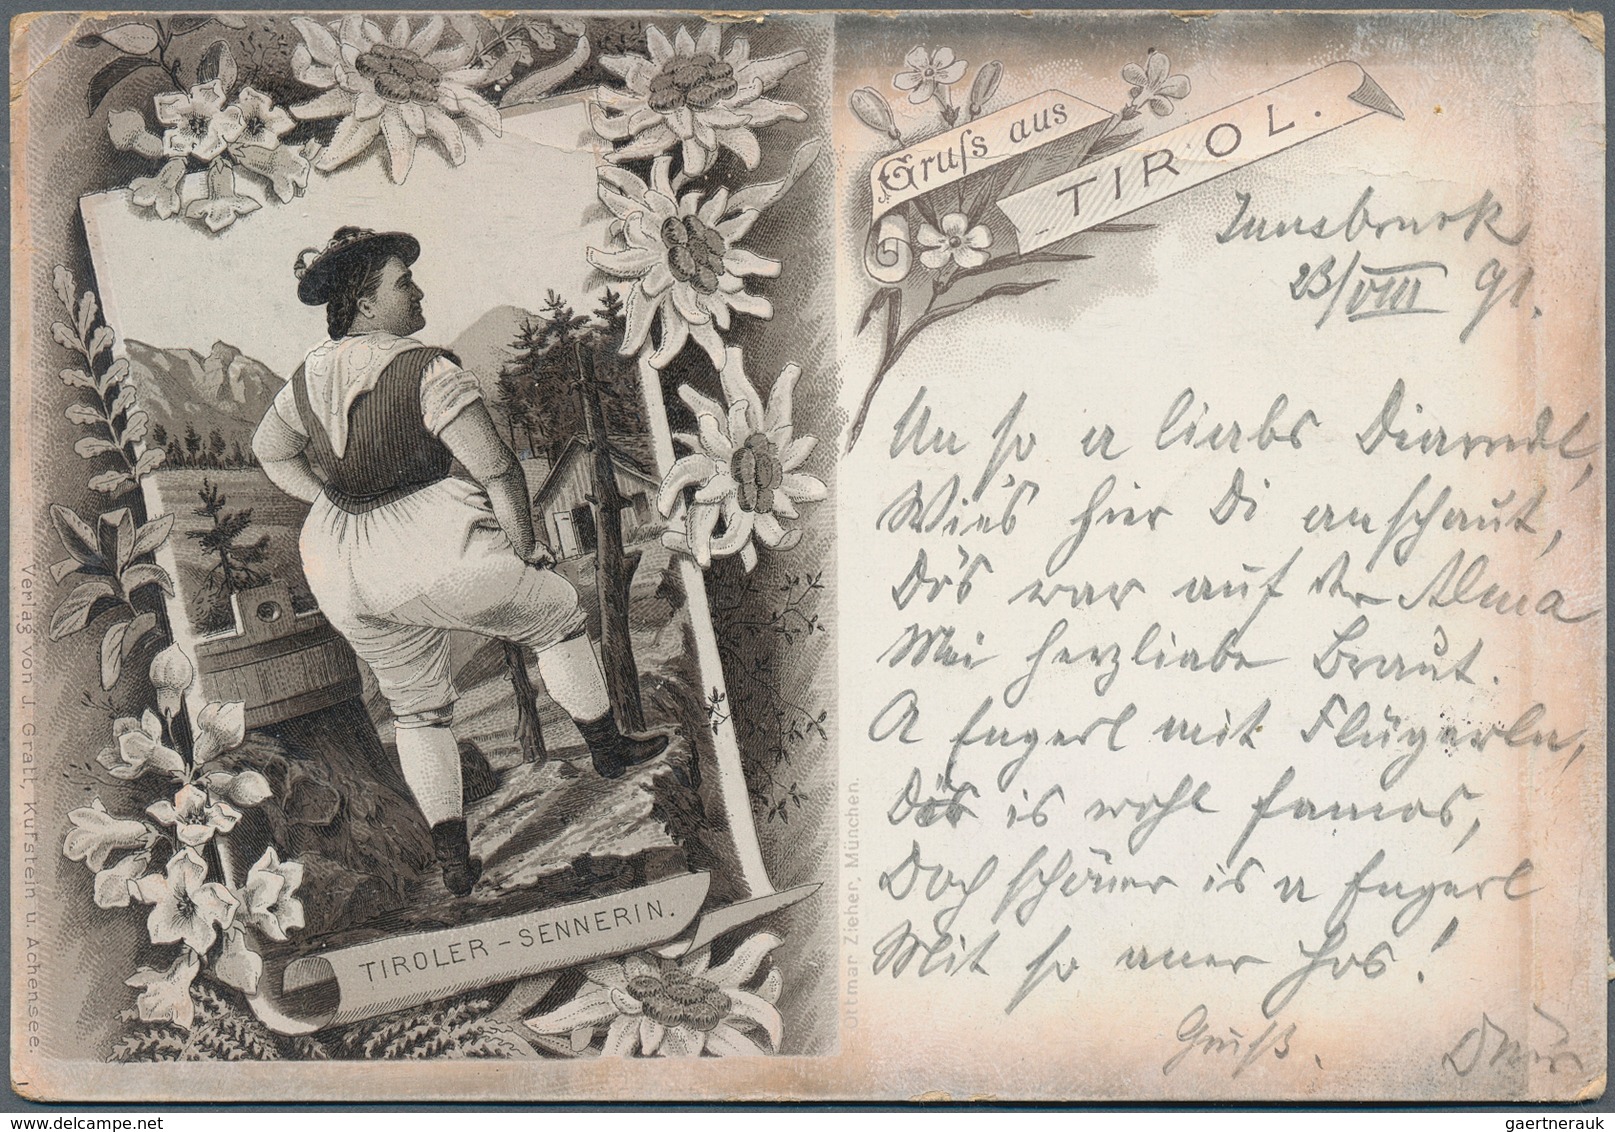 Gruſs aus
TIROL.
Innsbruck
23/VIII 91.
Un so a liabs Diarndl,
Wie's hier Di anschaut,
Dös war auf der Alma
Mei herzliabe Braut.
A Engerl mit Flügerln,
Dös is wohl famos,
Doch schöner is a Engerl
Mit so aner Hos!
Gruß.
TIROLER-SENNERIN.
Verlag von J. Gratt, Kufstein u. Achensee.
Ottmar Zieher, München.
gaertnerauk
www.delcampe.net